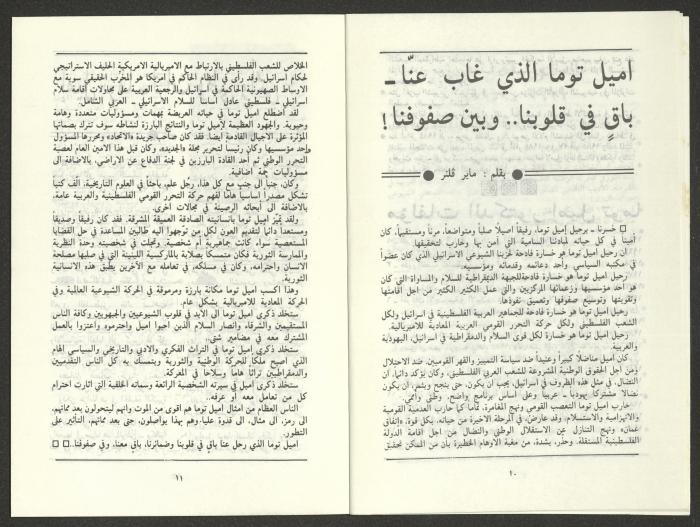 اميل توما الذي غاب عنّا ــ
باقٍ في قلوبنا.. وبين صفوفنا!
بقلم : ماير ڤلنر
□ خسرنا ـ برحيل إميل توما، رفيقاً أصيلاً صلباً ومتواضعاً، مرناً ومستقيماً، كان
أميناً في كل حياته لمبادئنا السامية التي آمن بها وحارب لتحقيقها.
ان رحيل اميل توما هو خسارة فادحة لحزبنا الشيوعي الاسرائيلي الذي كان عضواً
في مكتبه السياسي وأحد دعائمه وقدمائه ومؤسسيه.
رحيل اميل توما هو خسارة فادحة للجبهة الديمقراطية للسلام والمساواة التي كان
هو أحد مؤسسيها وزعمائها المركزيين والتي عمل الكثير الكثير من اجل اقامتها
وتقويتها وتوسيع صفوفها وتعميق نفوذها.
رحيل اميل توما هو خسارة فادحة للجماهير العربية الفلسطينية في اسرائيل ولكل
الشعب الفلسطيني ولكل حركة التحرر القومي العربية المعادية للامبريالية.
رحيل اميل توما هو خسارة لكل قوى السلام والديمقراطية في اسرائيل، اليهودية
والعربية.
كان اميل مناضلاً كبيراً وعنيداً ضد سياسة التمييز والقهر القوميين، ضد الاحتلال
ومن اجل الحقوق الوطنية المشروعة للشعب العربي الفلسطيني، وكان يؤكد دائماً، أن
النضال، في مثل هذه الظروف في اسرائيل، يجب ان يكون، حتى ينجح ويثمر، ان يكون
نضالا مشتركا يهودياً ـ عربياً وعلى اساس برنامج واضح، وطني وأممي.
حارب اميل توما التعصب القومي ونهج المغامرة، تماماً كما حارب العدمية القومية
والانهزامية والاستسلام. وقد عارض، في المرحلة الاخيرة من حياته، بكل قوة، «إتفاق
عمان» ونهج التنازل عن الاستقلال الوطني والنضال من اجل اقامة الدولة
الفلسطينية المستقلة. وحذّر، بشدة، من مغبة الاوهام الخطيرة بأن من الممكن تحقيق
١٠
الخلاص للشعب الفلسطيني بالارتباط مع الامبريالية الامريكية الحليف الاستراتيجي
لحكام اسرائيل. وقد رأى في النظام الحاكم في امريكا هو المخرّب الحقيقي سوية مع
الاوساط الصهيونية الحاكمة في اسرائيل والرجعية العربية على محاولات اقامة سلام
اسرائيلي ـ فلسطيني عادل أساساً للسلام الاسرائيلي ـ العربي الشامل.
لقد اضطلع اميل توما في حياته العريضة بمهمات ومسؤوليات متعددة وهامة
وحيوية. والجهود العظيمة لاميل توما والنتائج البارزة لنشاطه سوف تترك بصماتها
المؤثرة على الاجيال القادمة ايضا. فقد كان صاحب جريدة «الاتحاد» ومحررها المسؤول
وأحد مؤسسيها وكان رئيساً لتحرير مجلة «الجديد»، وكان قبل هذا الامين العام لعصبة
التحرر الوطني ثم أحد القادة البارزين في لجنة الدفاع عن الاراضي. بالاضافة الى
مسؤوليات جمة اضافية.
وكان، جنباً الى جنب مع كل هذا، رجل علم، باحثاً في العلوم التاريخية، الّف كتباً
تشكل مصدراً أساسياً هاماً لفهم حركة التحرر القومي الفلسطينية والعربية عامة.
بالاضافة الى أبحاثه الرصينة في مجالات اخرى.
ولقد تميّز اميل توما بانسانيته الصادقة العميقة المشرقة، فقد كان رفيقاً وصديقاً
ومستعداً دائماً لتقديم العون لكل من توجّهوا اليه طالبين المساعدة في حل القضايا
المستعصية سواء كانت جماهيرية أم شخصية. وتجلت في شخصيته وحدة النظرية
والممارسة الثورية فكان متمسكاً بصلابة بالماركسية اللينينية التي في صلبها مصلحة
الانسان واحترامه، وكان في مسلكه، في تعامله مع الآخرين يطبق هذه الانسانية
الثورية.
وهذا اكسب اميل توما مكانة بارزة ومرموقة في الحركة الشيوعية العالمية وفي
الحركة المعادية للامبريالية بشكل عام.
ستخلد ذكرى اميل توما الى الأبد في قلوب الشيوعيين والجبهويين وكافة الناس
المستقيمين والشرفاء وانصار السلام الذين احبوا اميل واحترموه واعتزوا بالعمل
المشترك معه في مضامير شتى.
ستخلد ذكرى اميل توما في التراث الفكري والادبي والتاريخي والسياسي الهام
الذي اصبح ملكاً للحركة الوطنية والثورية ويتمسك به كل الناس التقدميين
والديمقراطيين تراثاً هاماً وسلاحاً في المعركة.
ستخلد ذكرى اميل توما في سيرته الشخصية الرائعة وسماته الخلقية التي أثارت احترام
كل من تعامل معه أو عرفه..
الناس العظام من أمثال اميل توما هم أقوى من الموت وانهم ليتحولون بعد مماتهم،
الى رمز، الى مثال، الى قدوة عليا، وهم بهذا يواصلون، حتى بعد مماتهم، التأثير على
التطور.
اميل توما الذي رحل عنا باقٍ في قلوبنا وضمائرنا، باقٍ معنا، وفي صفوفنا. □ □
١١